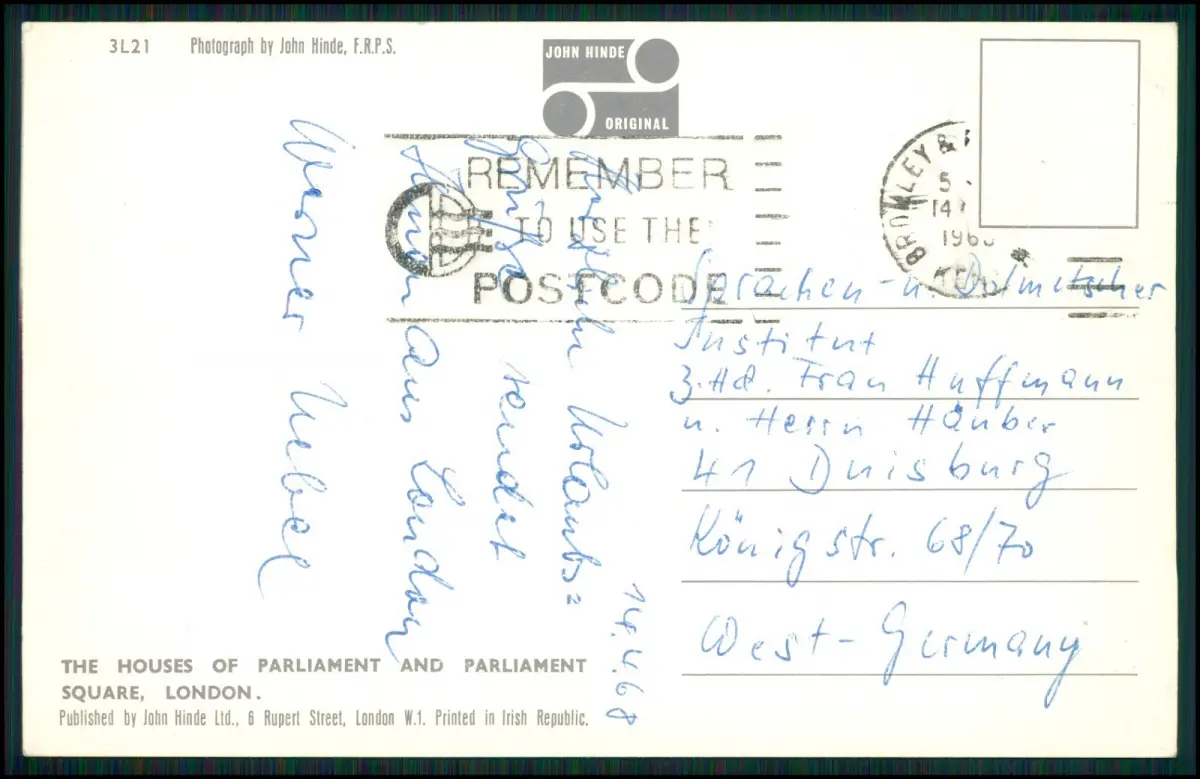 3L21 Photograph by John Hinde, F.R.P.S.
JOHN HINDE
ORIGINAL
REMEMBER
TO USE THE
POSTCODE
BROMLEY &
5
14
196
KENT
14.4.68
Herzliche Urlaubs=
Grüße sendet
Ihnen aus London
Werner
Sprachen- u. Dolmetscher
Institut
z.Hd. Frau Huffmann
u. Herrn Häuber
41 Duisburg
Königstr. 68/70
West-Germany
THE HOUSES OF PARLIAMENT AND PARLIAMENT
SQUARE, LONDON.
Published by John Hinde Ltd., 6 Rupert Street, London W.1. Printed in Irish Republic.